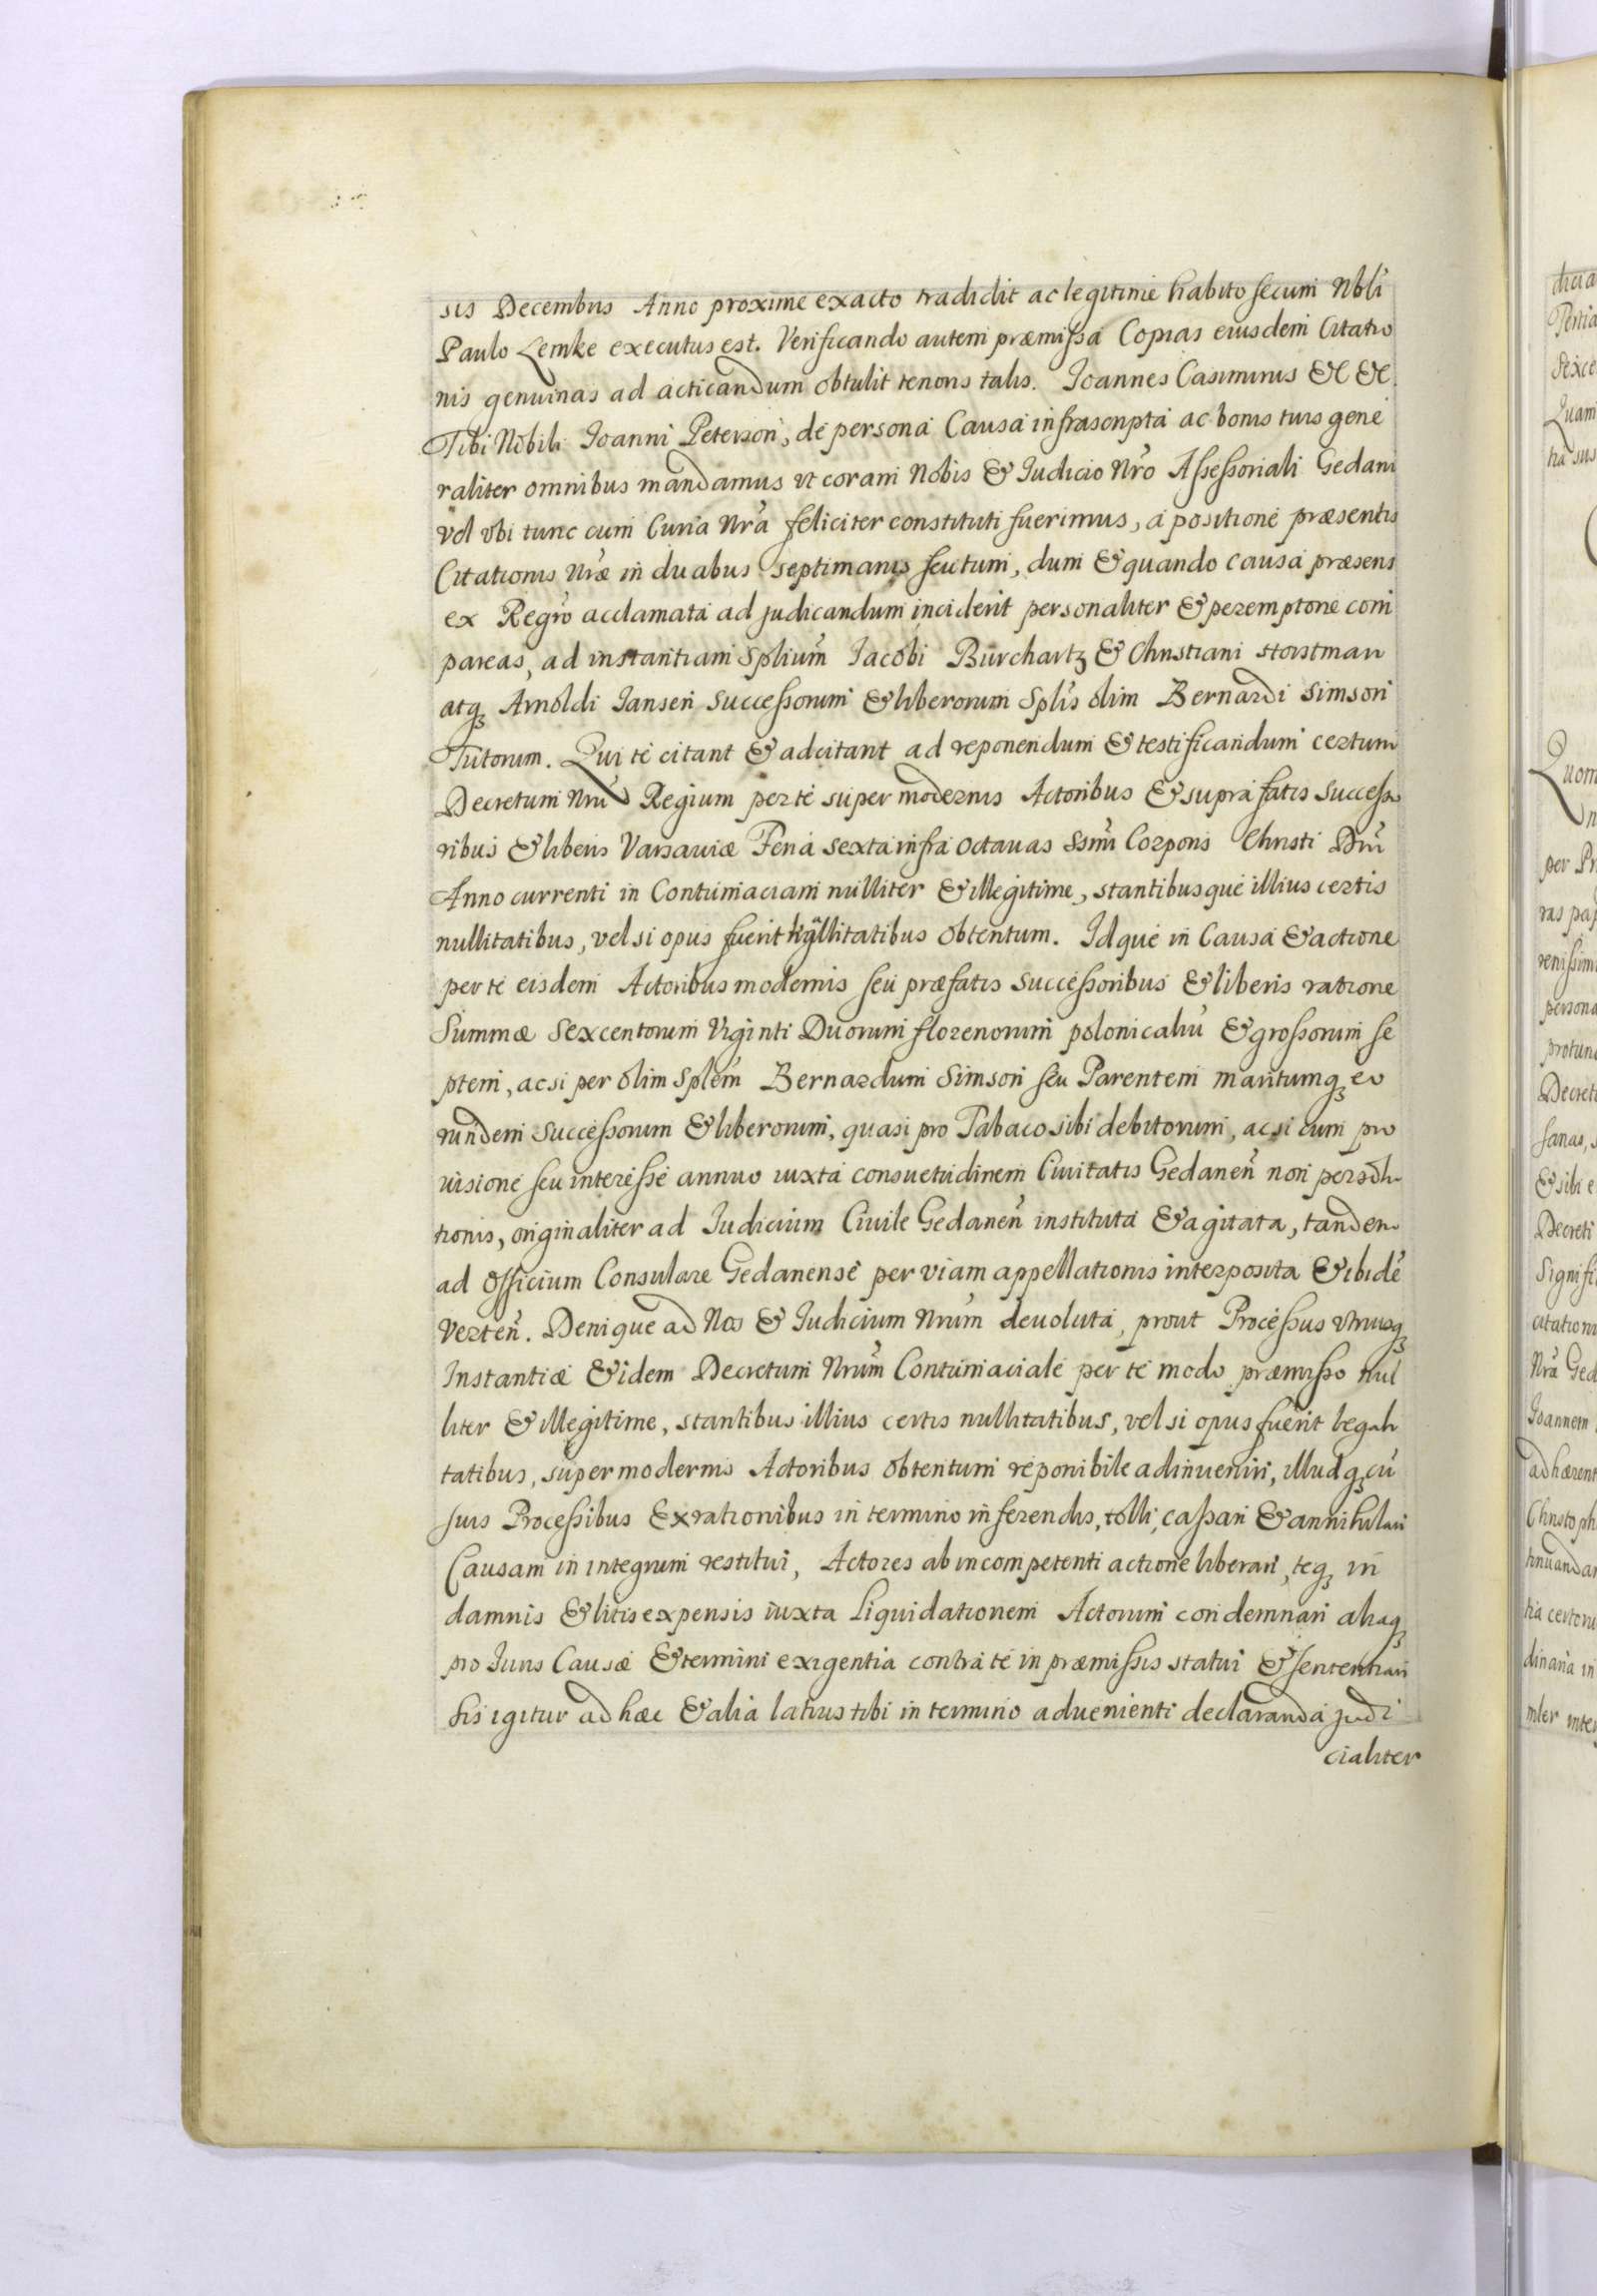 sis Decembris Anno proxime exacto tradidit ac legitime habito secum Nbli
Paulo Lemke executus est. Verificando autem præmissa Copias eiusdem Citatio
nis genuinas ad acticandum obtulit tenoris talis. Joannes Casimirus &c &c.
Tibi Nobili Joanni Peterson, de persona Causa infrascripta ac bonis tuis gene
raliter omnibus mandamus vt coram Nobis & Judicio Nro Assessoriali Gedani
vel vbi tunc cum Curia Nra feliciter constituti fuerimus, a positione præsentis
Citationis Nræ in duabus septimanis seu tum, dum & quando causa præsens
ex Regro acclamata ad judicandum inciderit personaliter & peremptorie com
pareas, ad instantiam Splium Jacobi Burchartz & Christiani Storstman
atq Arnoldi Jansen Successorum & liberorum Splis olim Bernardi Simson
Tutorum. Qui te citant & adcitant ad reponendum & testificandum certum
Decretum Nrum Regium per te super modernis Actoribus & supra fatis Successo
ribus & liberis Varsauiæ Feria sexta infra octauas Ssmi Corporis Christi Dni
Anno currenti in Contumaciam nulliter & illegitime, stantibus que illius certis
nullitatibus, vel si opus fuerit nullitatibus obtentum. Id que in Causa & actione
per te eisdem Actoribus modernis seu præfatis Successoribus & liberis ratione
Summæ Sexcentorum Viginti Duorum florenorum polonicaliu & grossorum se
ptem, ac si per olim Splem Bernardum Simson seu Parentem maritumq eo
rundem Successorum & liberorum, quasi pro Tabaco sibi debitorum, ac si cum pro
uisione seu interesse annuo iuxta consuetudinem Ciuitatis Gedanen non persolu
tionis, originaliter ad Judicium Ciuile Gedanen instituta & agitata, tandem
ad Officium Consulare Gedanense per viam appellationis interposita & ibide
Verten. Denique ad Nos & Judicium Nrum deuoluta, prout Processus vtriusq
Instantiæ & idem Decretum Nrum Contumaciale per te modo præmisso nul
liter & illegitime, stantibus illius certis nullitatibus, vel si opus fuerit legali
tatibus, super modernis Actoribus obtentum reponibile adinueniri, illudq cu
suis Processibus Ex rationibus in termino inferendis, tolli, cassari & annihilari
Causam in integrum restitui, Actores ab incompetenti actione liberari, teq in
damnis & litis expensis iuxta Liquidationem Actorum condemnari aliaq
pro Juris Causæ & termini exigentia contra te in præmissis statui & sententiari
sis igitur ad hæc & alia latius tibi in termino aduenienti declaranda judi
cialiter